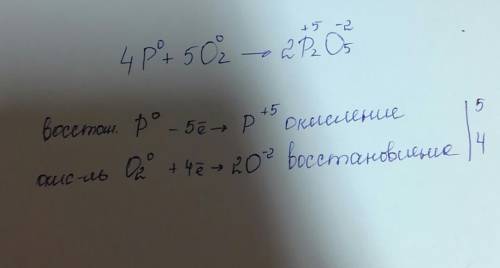 4P⁰ + 5O₂⁰ → 2P₂⁺⁵O₅⁻²
восстан. P⁰ − 5ē → P⁺⁵ окисление | 5
окис-ль O₂⁰ + 4ē → 2O⁻² восстановление | 4